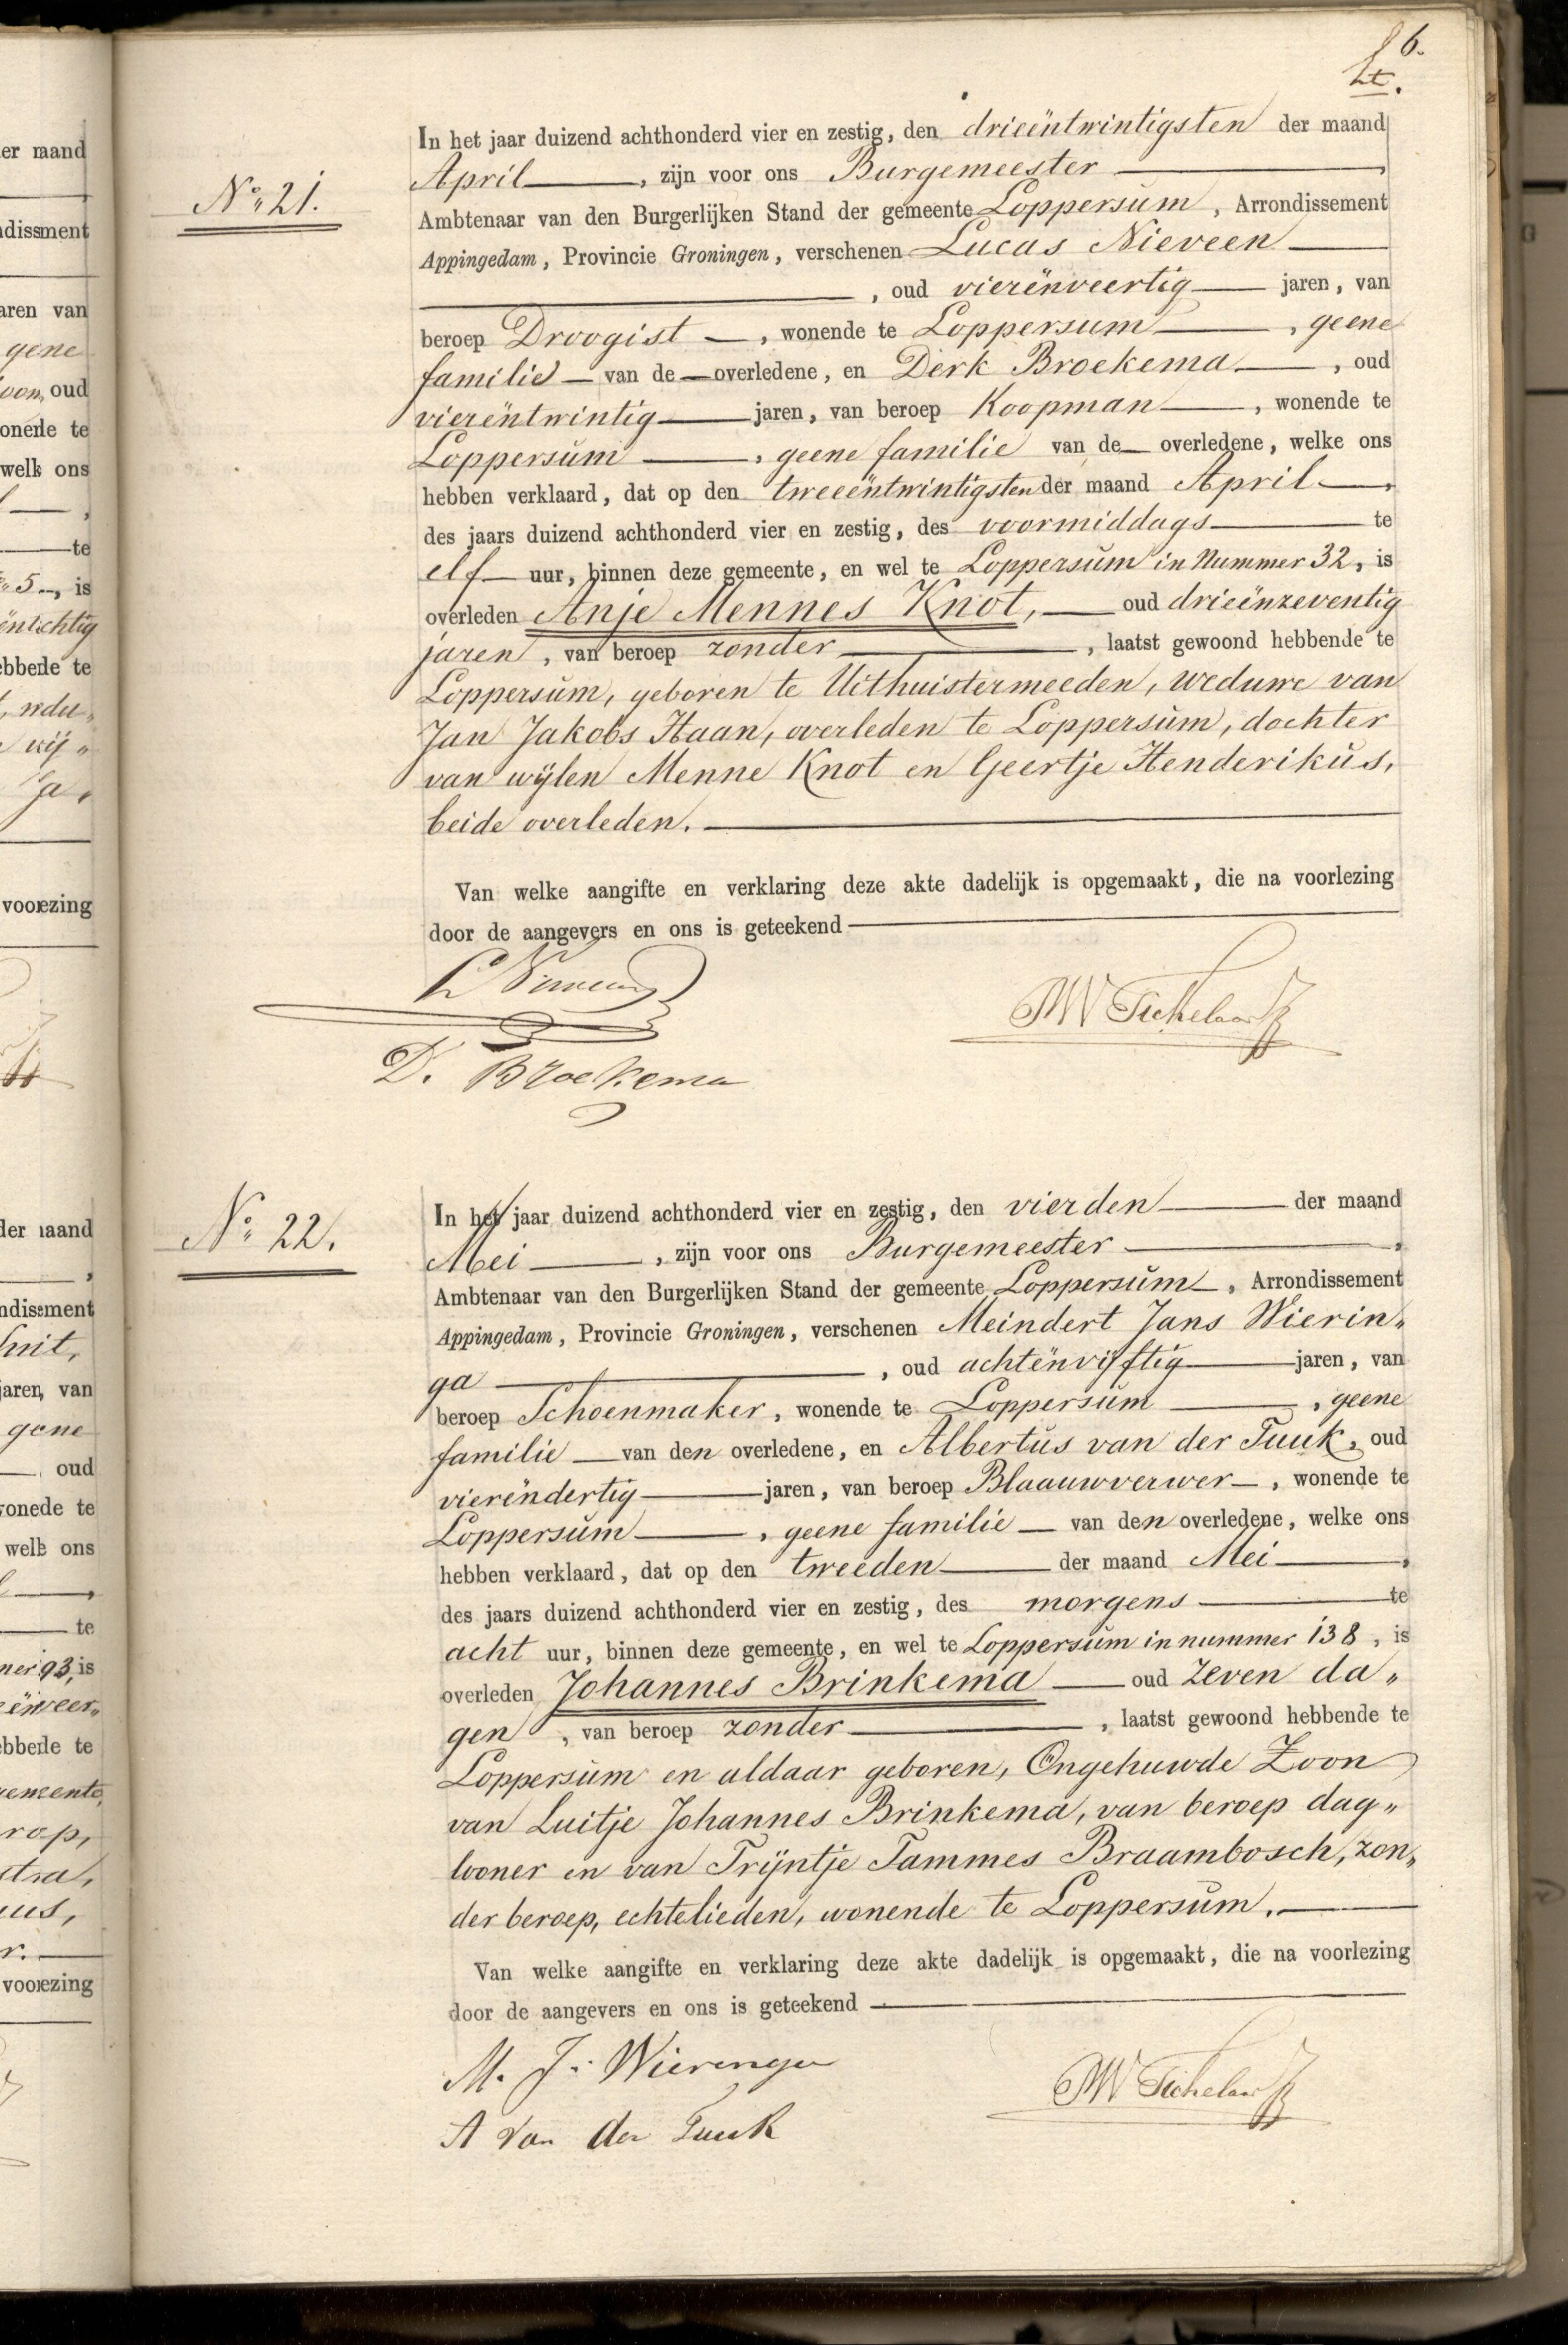 6.
N° 21.
In het jaar duizend achthonderd vier en zestig, den drieëntwintigsten der maand
April, zijn voor ons Burgemeester,
Ambtenaar van den Burgerlijken Stand der gemeente Loppersum, Arrondissement
Appingedam, Provincie Groningen, verschenen Lucas Nieveen
, oud vierënveertig jaren, van
beroep Droogist, wonende te Loppersum, geene
familie van de overledene, en Derk Broekema, oud
vierëntwintig jaren, van beroep Koopman, wonende te
Loppersum, geene familie van de overledene, welke ons
hebben verklaard, dat op den tweeëntwintigsten der maand April,
des jaars duizend achthonderd vier en zestig, des voormiddags te
elf uur, binnen deze gemeente, en wel te Loppersum in Nummer 32, is
overleden Anje Mennes Knot, oud drieënzeventig
jaren, van beroep zonder, laatst gewoond hebbende te
Loppersum, geboren te Uithuistermeeden, weduwe van
Jan Jakobs Haan, overleden te Loppersum, dochter
van wijlen Menne Knot en Geertje Henderikus,
beide overleden.
Van welke aangifte en verklaring deze akte dadelijk is opgemaakt, die na voorlezing
door de aangevers en ons is geteekend
L Nieveen
D. Broekema
N° 22.
In het jaar duizend achthonderd vier en zestig, den vierden der maand
Mei, zijn voor ons Burgemeester,
Ambtenaar van den Burgerlijken Stand der gemeente Loppersum, Arrondissement
Appingedam, Provincie Groningen, verschenen Meindert Jans Wierin„
ga, oud achtënvijftig jaren, van
beroep Schoenmaker, wonende te Loppersum, geene
familie van den overledene, en Albertus van der Tuuk, oud
vierëndertig jaren, van beroep Blaauwverwer, wonende te
Loppersum, geene familie van den overledene, welke ons
hebben verklaard, dat op den tweeden der maand Mei,
des jaars duizend achthonderd vier en zestig, des morgens te
acht uur, binnen deze gemeente, en wel te Loppersum in nummer 138, is
overleden Johannes Brinkema oud zeven da„
gen, van beroep zonder, laatst gewoond hebbende te
Loppersum en aldaar geboren, Ongehuwde Zoon
van Luitje Johannes Brinkema, van beroep dag„
looner en van Trijntje Tammes Braambosch, zon„
der beroep, echtelieden, wonende te Loppersum.
Van welke aangifte en verklaring deze akte dadelijk is opgemaakt, die na voorlezing
door de aangevers en ons is geteekend
M. J. Wierenga
A van der Tuuk